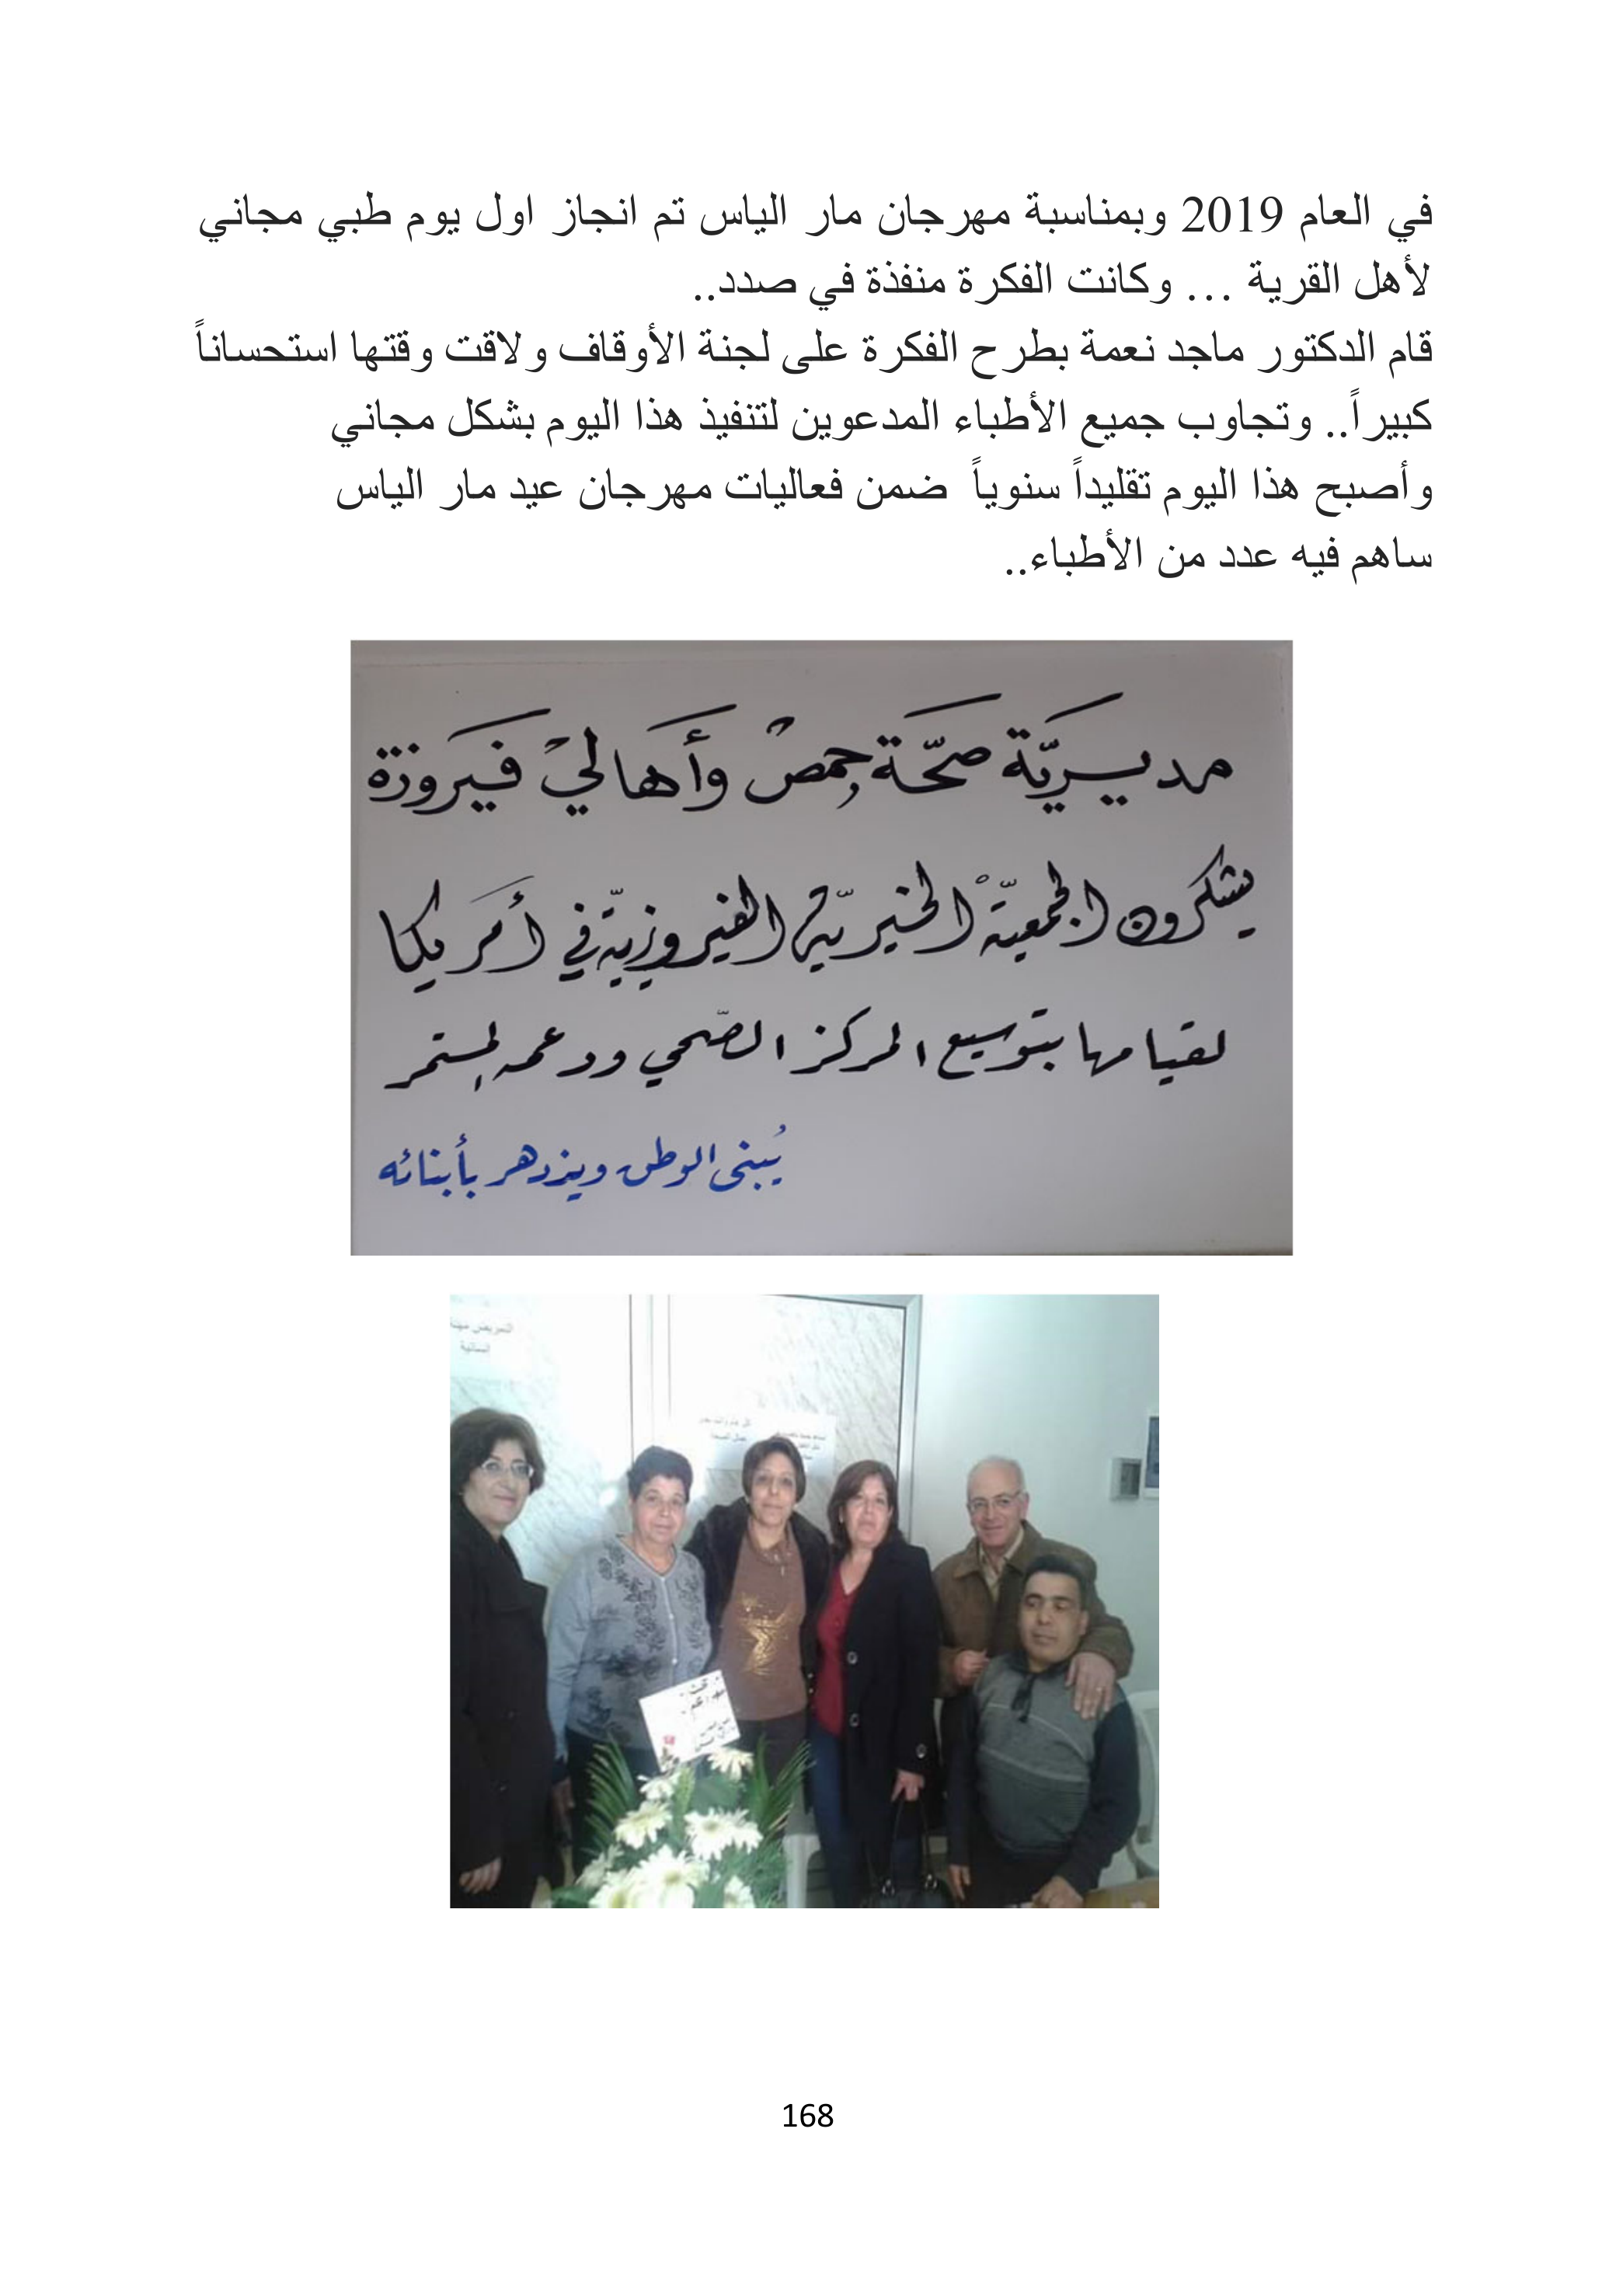 في العام 2019 وبمناسبة مهرجان مار الياس تم انجاز اول يوم طبي مجاني
لأهل القرية ... وكانت الفكرة منفذة في صدد..
قام الدكتور ماجد نعمة بطرح الفكرة على لجنة الأوقاف ولاقت وقتها استحساناً
كبيراً.. وتجاوب جميع الأطباء المدعوين لتنفيذ هذا اليوم بشكل مجاني
وأصبح هذا اليوم تقليداً سنوياً ضمن فعاليات مهرجان عيد مار الياس
ساهم فيه عدد من الأطباء..
مديريّة صحّة حِمصْ وأَهاليْ فَيروزة
يشكرون الجمعيّةْ الخيريّة الفيروزيّة في أَمريكا
لقيامها بتوسيع المركز الصّحي ودعمه المستمر
يُبنى الوطن ويزدهر بأبنائه
التمريض مهنة
انسانية
168